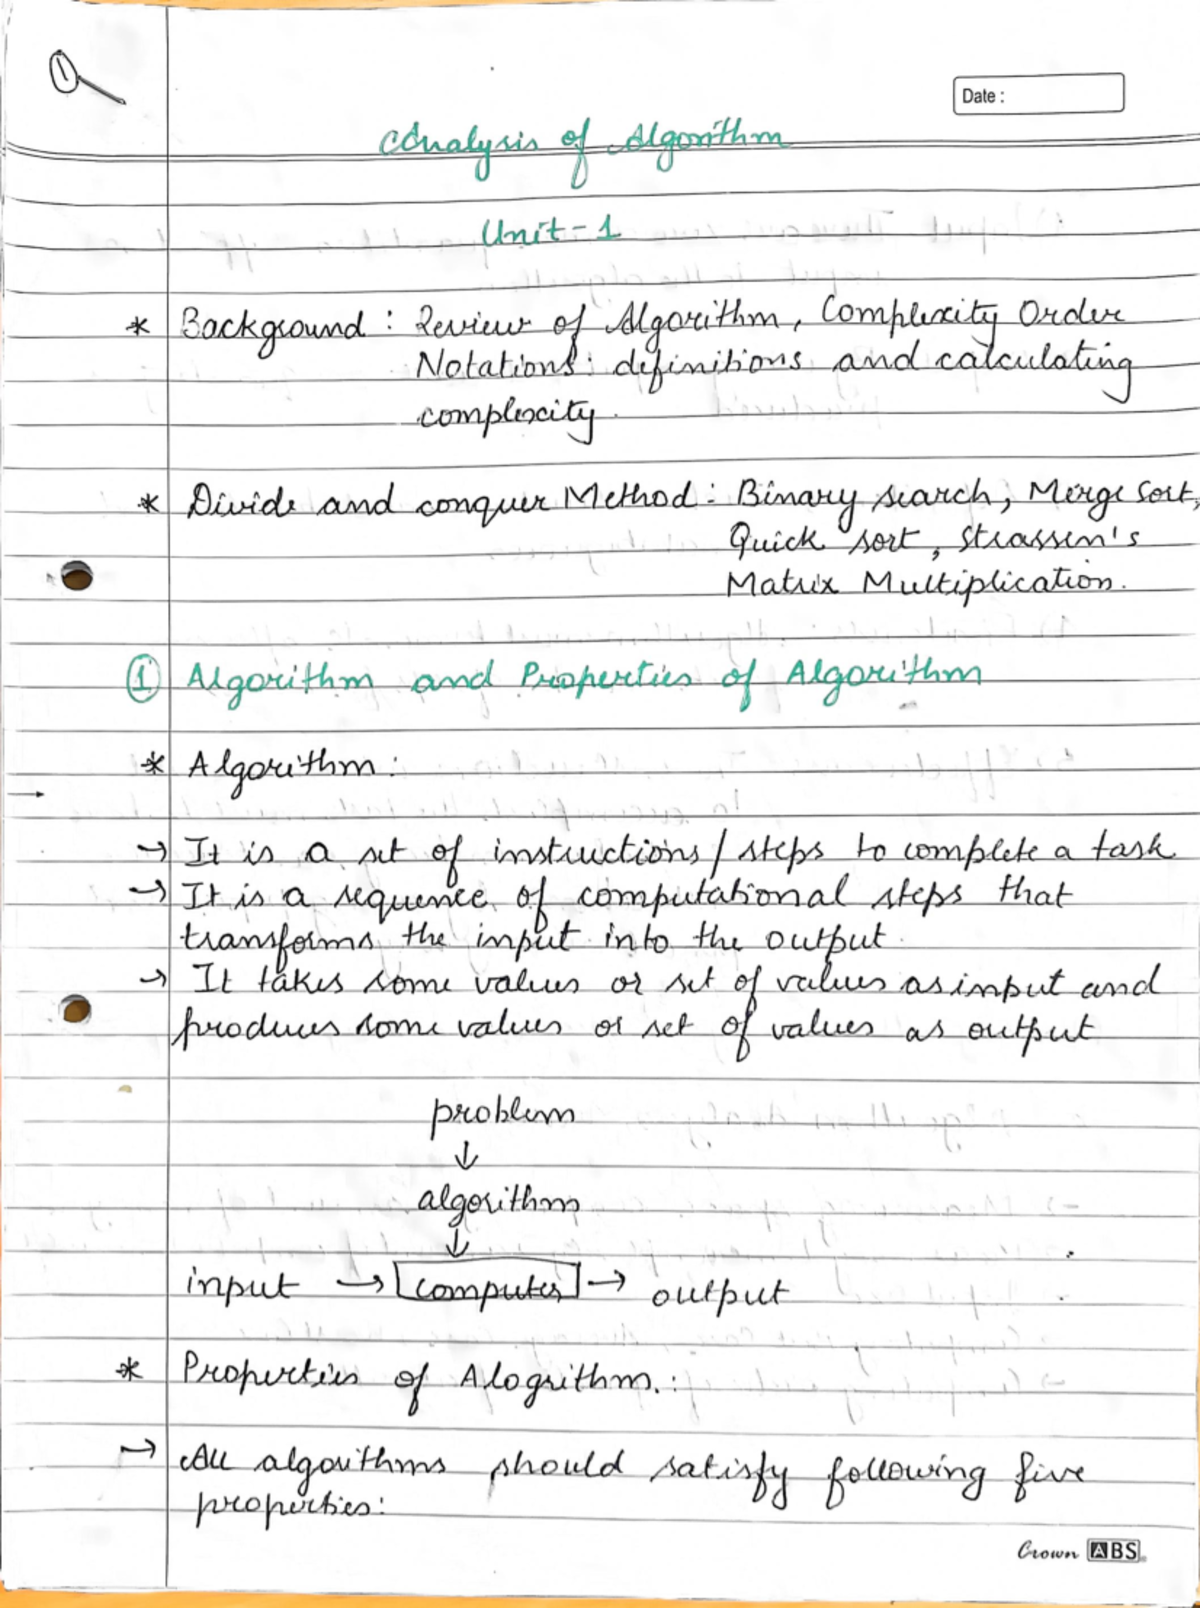 1
Date :
Analysis of Algorithm
Unit-1
* Background : Review of Algorithm, Complexity Order
Notations: definitions and calculating
complexity.
* Divide and conquer Method: Binary search, Merge Sort,
Quick sort, Strassen's
Matrix Multiplication.
① Algorithm and Properties of Algorithm
* Algorithm:
→ It is a set of instructions / steps to complete a task
→ It is a sequence of computational steps that
transforms the input into the output.
→ It takes some values or set of values as input and
produces some values or set of values as output
problem
↓
algorithm
↓
input → computer → output
* Properties of Alogrithm.:
→ All algorithms should satisfy following five
properties:
Crown ABS